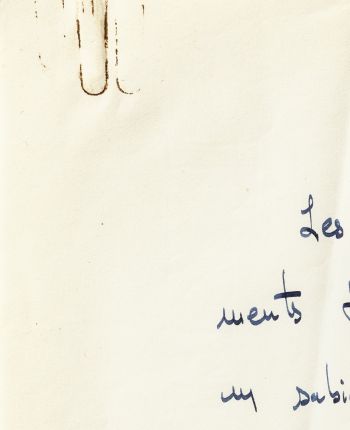 Les
ments
un sabi